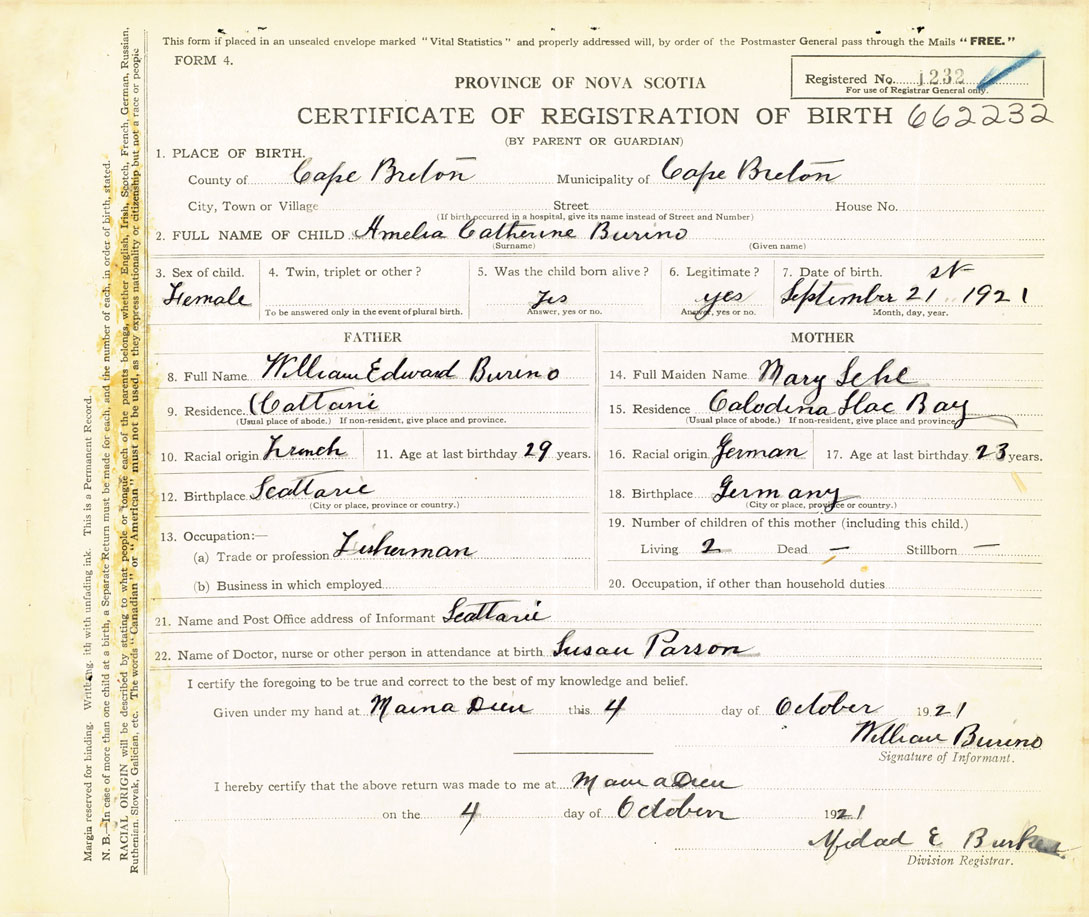 This form if placed in an unsealed envelope marked "Vital Statistics" and properly addressed will, by order of the Postmaster General pass through the Mails "FREE."
FORM 4.
Registered No. 1232
For use of Registrar General only.
PROVINCE OF NOVA SCOTIA
CERTIFICATE OF REGISTRATION OF BIRTH 662232
(BY PARENT OR GUARDIAN)
1. PLACE OF BIRTH.
County of Cape Breton Municipality of Cape Breton
City, Town or Village Street House No.
(If birth occurred in a hospital, give its name instead of Street and Number)
2. FULL NAME OF CHILD Amelia Catherine Burino
(Surname) (Given name)
3. Sex of child. 4. Twin, triplet or other? 5. Was the child born alive? 6. Legitimate? 7. Date of birth.
Female yes yes September 21st 1921
To be answered only in the event of plural birth. Answer, yes or no. Answer, yes or no. Month, day, year.
FATHER MOTHER
8. Full Name William Edward Burino 14. Full Maiden Name Mary
9. Residence. 15. Residence Bay
(Usual place of abode.) If non-resident, give place and province. (Usual place of abode.) If non-resident, give place and province.
10. Racial origin French 11. Age at last birthday 29 years. 16. Racial origin German 17. Age at last birthday 23 years.
12. Birthplace Scattarie 18. Birthplace Germany
(City or place, province or country.) (City or place, province or country.)
13. Occupation:— 19. Number of children of this mother (including this child.)
(a) Trade or profession Fisherman Living 2 Dead — Stillborn —
(b) Business in which employed 20. Occupation, if other than household duties
21. Name and Post Office address of Informant Scattarie
22. Name of Doctor, nurse or other person in attendance at birth Susan Parson
I certify the foregoing to be true and correct to the best of my knowledge and belief.
Given under my hand at Maina Dieu this 4 day of October 1921
William Burino
Signature of Informant.
I hereby certify that the above return was made to me at Main a Dieu
on the 4 day of October 1921
E Burke
Division Registrar.
Margin reserved for binding. Writing with unfading ink. This is a Permanent Record.
N. B.—In case of more than one child at a birth, a Separate Return must be made for each, and the number of each, in order of birth, stated.
RACIAL ORIGIN will be described by stating to what people or tongue each of the parents belongs, whether English, Irish, Scotch, French, German, Russian,
Ruthenian, Slovak, Galician, etc. The words "Canadian" or "American" must not be used, as they express nationality or citizenship but not a race or people